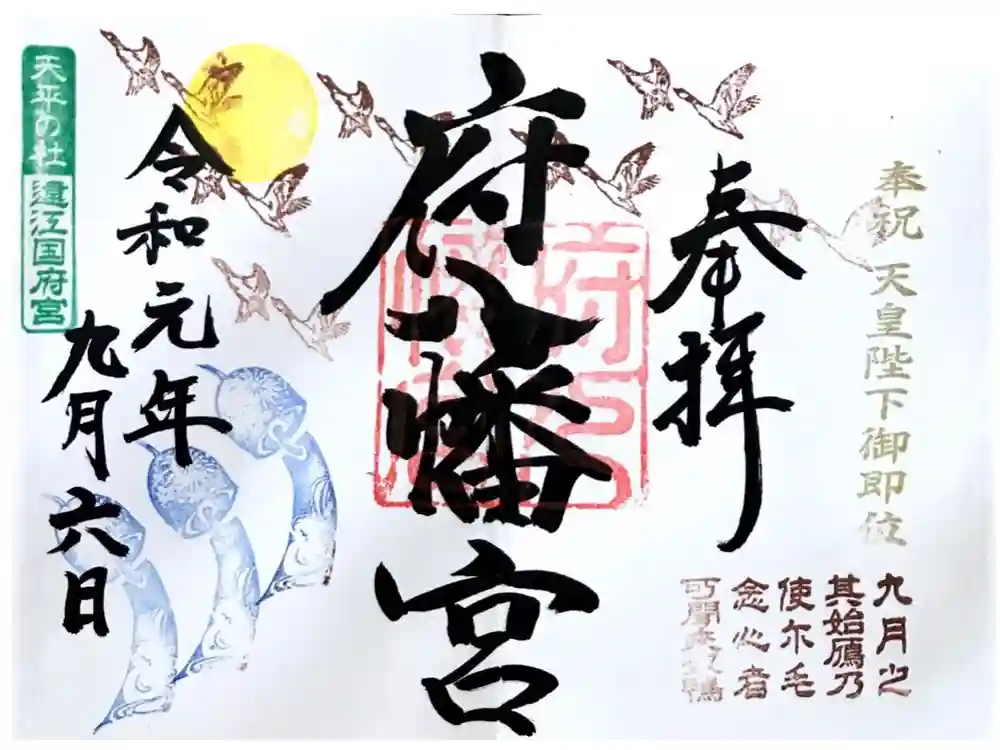 奉祝 天皇陛下御即位
九月之
其始鴈乃
使尓毛
念心者
可聞来奴鴨
奉拝
府八幡宮
府八
幡宮
令和元年
九月六日
天平の杜
遠江国府宮